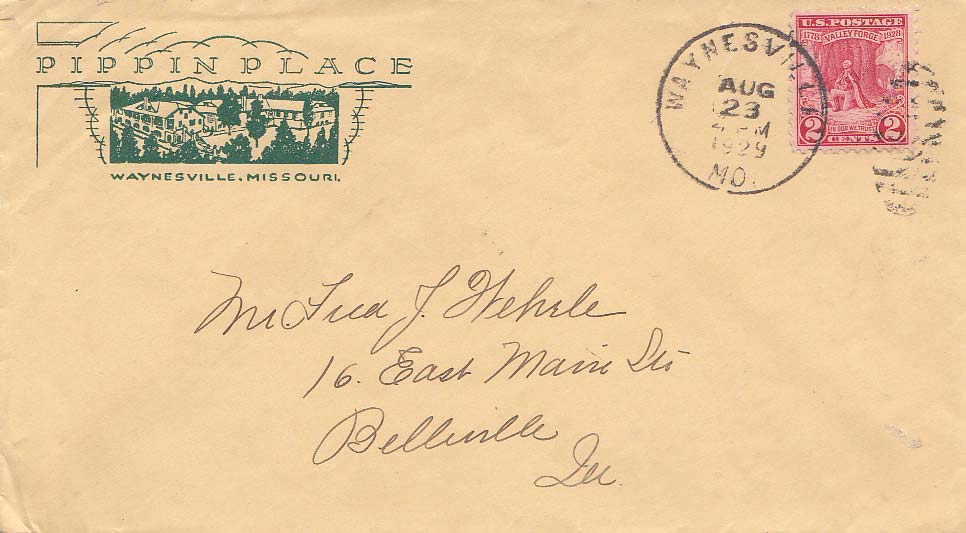 PIPPIN PLACE
WAYNESVILLE, MISSOURI.
WAYNESVILLE
AUG
23
PM
1929
MO.
U.S. POSTAGE
1778 VALLEY FORGE 1928
IN GOD WE TRUST
2 CENTS 2
Mr Fred J. Wehrle
16. East Main St.
Belleville
Ill.